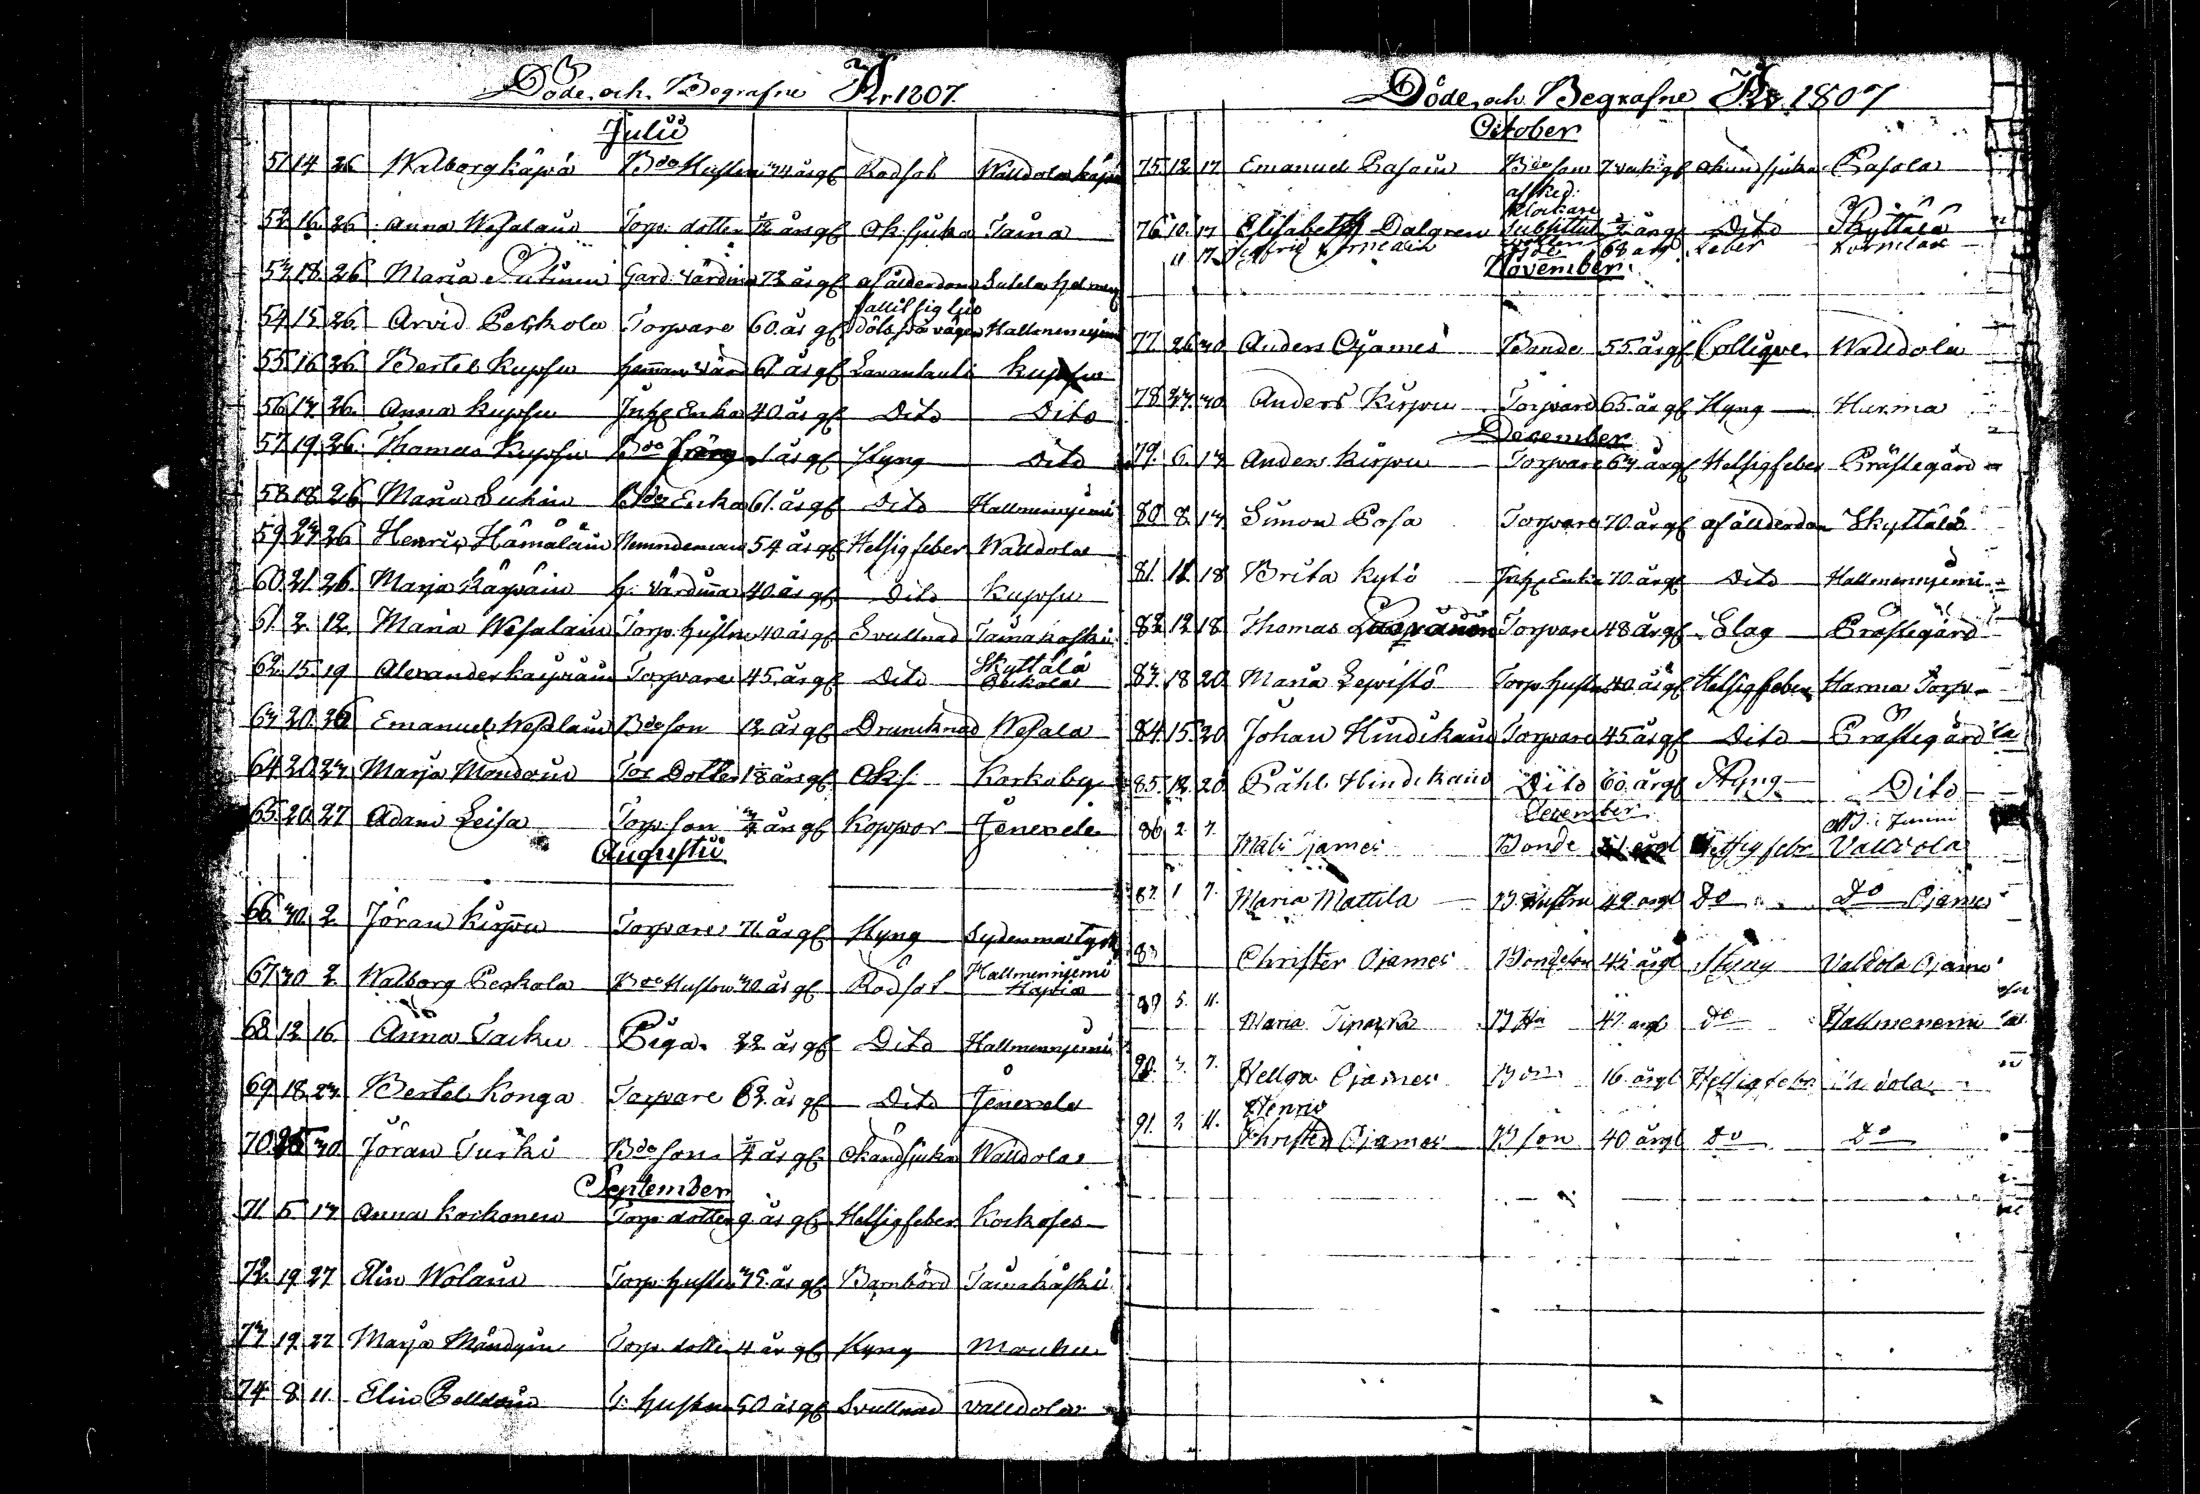 Döde och Begrafne År 1807.
Julii
51 14 26 Walborg Käpä Bde Hustru 34 års gl Rödsot Walldola Käpä
52 16 26 Anna Wesalain Torp. dotter 1/2 års gl Ok. sjuka Taina
53 18 26 Maria Gård värdin 72 års gl af ålderdom
54 15 26 Arvid Peckola Torpare 60 års gl fallit sig
döds på vägen Hallmenniemi
55 16 26 Bertel Kupsu Hemman värd 61 års gl Kupsu
56 17 26 Anna Kupsu Inhs Enka 40 års gl Dito Dito
57 19 26 Thomas Kupsu Bde 1 års gl Styng Dito
58 18 26 Maria Suikin Bde Enka 61 års gl Dito Hallmenniemi
59 23 26 Henric Hämäläin Nemndeman 54 års gl Hetsig feber Walldola
60 21 26 Marja Käpäin h. värdinna 40 års gl Dito Kupsu
61 2 12 Maria Wesalain Torp. hustru 40 års gl Svullnad Tainakoski
62 15 19 Alexander Torpare 45 års gl Dito Skyttälä
Peckola
63 20 26 Emanuel Weslain Bde son 12 års gl Druncknad Wesala
64 20 23 Marja Mondoin Tor. Dotter 18 års gl Oks. Korkaby
65 20 27 Adam Leisa Torp. son 3/4 års gl Koppor Jenexele
Augustii
66 30 2 Jöran Kirppu Torpare 71 års gl Styng
67 30 2 Walborg Peckola Bde Hustru 30 års gl Rödsot Hallmenniemi
68 12 16 Anna Tacku Piga 22 års gl Dito Hallmenniemi
69 18 23 Bertel Konga Torpare 62 års gl Dito Jenexele
70 25 30 Jöran Turki Bde son 1/4 års gl okänd sjuka Walldola
September
71 5 13 Anna Kockonen Torp. dotter 9 års gl Hetsig feber
72 19 27 Elin Wolain Torp. hustru 35 års gl Barnbörd Tainakoski
73 19 27 Marja Torp. dotter 4 år gl Styng
74 8 11 Elin T. hustru 50 års gl Svullnad Valldola
Döde och Begrafne År 1807
October
75 12 17 Emanuel Pasoin Bde son 7 vek. gl okänd sjuka Pasola
afsked.
klockare
76 10 17 Elisabeth Dalgren Substitut årgl Dito Skyttälä
11 17 68 årgl feber
November
77 26 30 Anders Ojames Bonde 55 års gl Collique Walldola
78 27 30 Anders Kirppu Torpare 65 års gl Styng Hurma
December
79 6 13 Anders Kirppu Torpare 63 årgl Hetsig feber Prästegård
80 8 13 Simon Posa Torpare 70 års gl af ålderdom Skyttälä
81 11 18 Brita Kytö Inhs Enka 70 års gl Dito Hallmenniemi
82 12 18 Thomas Torpare 48 års gl Slag Prästegård
83 18 20 Maria Lepistö Torp. hustru 40 års gl Hetsig feber Harma Torp.
84 15 20 Johan Hindikain Torpare 45 års gl Dito Prästegård
85 12 20 Påhl Hindikain Dito 60 årgl Styng Dito
December
86 2 7 Mats Ojames Bonde 51 årgl Hetsig feber Valldola
87 1 7 Maria Mattila B. Hustru 42 årgl Do Do Ojames
88 Christer Ojames Bondeson 45 årgl Styng Valdola Ojames
89 5 11 Maria B Hu 47 årgl Do Hallmeniemi
90 3 7 Hellga Ojames 16 årgl Hetsig feber Valdola
Henric
91 2 11 Christer Ojames B son 40 årgl Do Do